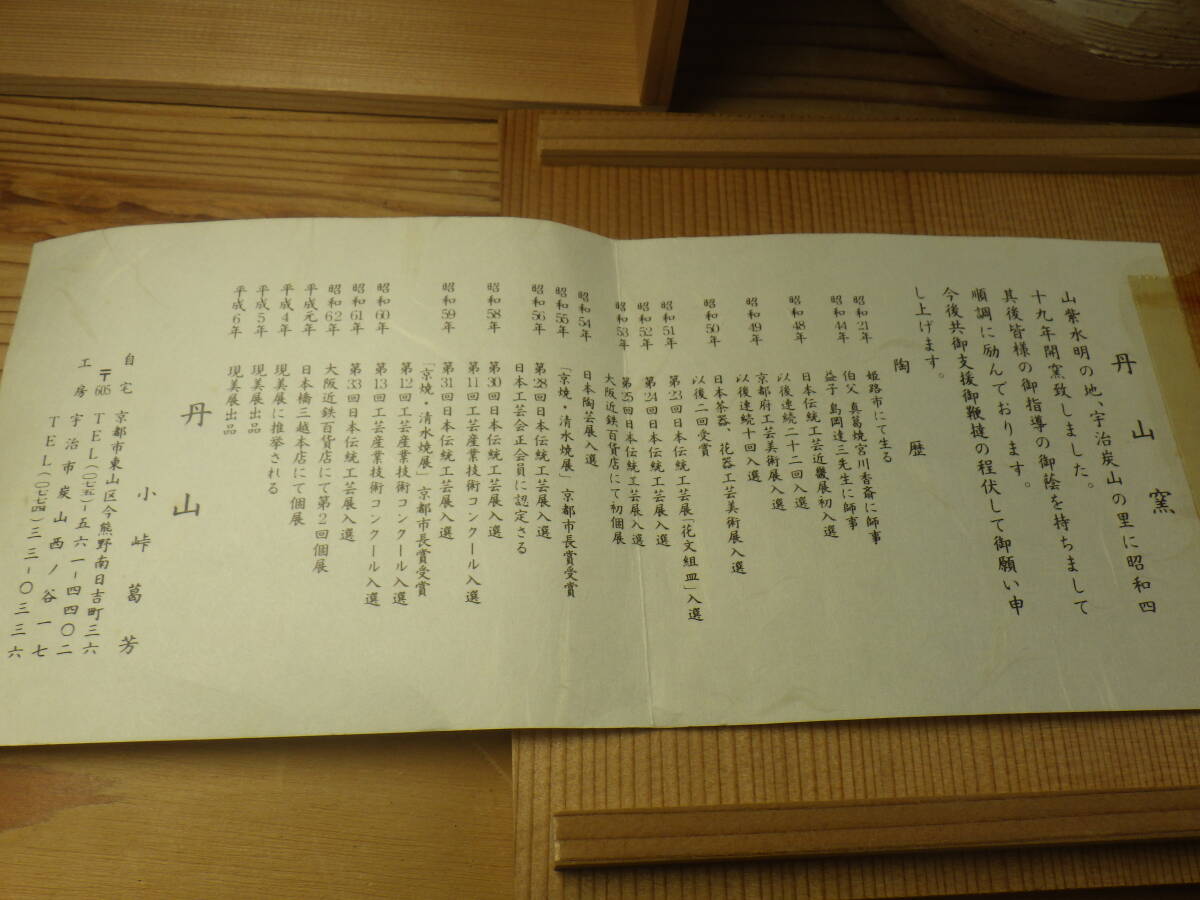 丹山窯
山紫水明の地、宇治炭山の里に昭和四
十九年開窯致しました。
其後皆様の御指導の御蔭を持ちまして
順調に励んでおります。
今後共御支援御鞭撻の程伏して御願い申
し上げます。
陶歴
昭和21年 姫路市にて生る
伯父 真葛焼宮川香斎に師事
昭和44年 益子 島岡達三先生に師事
昭和48年 日本伝統工芸近畿展初入選
以後連続二十二回入選
昭和49年 京都府工芸美術展入選
以後連続十回入選
昭和50年 日本茶器、花器工芸美術展入選
以後二回受賞
昭和51年 第23回日本伝統工芸展「花文組皿」入選
昭和52年 第24回日本伝統工芸展入選
昭和53年 第25回日本伝統工芸展入選
大阪近鉄百貨店にて初個展
昭和54年 日本陶芸展入選
昭和55年 「京焼・清水焼展」京都市長賞受賞
昭和56年 第28回日本伝統工芸展入選
日本工芸会正会員に認定さる
昭和58年 第30回日本伝統工芸展入選
第11回工芸産業技術コンクール入選
昭和59年 第31回日本伝統工芸展入選
「京焼・清水焼展」京都市長賞受賞
第12回工芸産業技術コンクール入選
昭和60年 第13回工芸産業技術コンクール入選
昭和61年 第33回日本伝統工芸展入選
昭和62年 大阪近鉄百貨店にて第2回個展
平成元年 日本橋三越本店にて個展
平成4年 現美展に推挙される
平成5年 現美展出品
平成6年 現美展出品
丹山
小峠葛芳
自宅 京都市東山区今熊野南日吉町三六
〒605 TEL(〇七五)-五六一-四四〇二
工房 宇治市炭山西ノ谷一七
TEL(〇七七四)三三-〇三三六